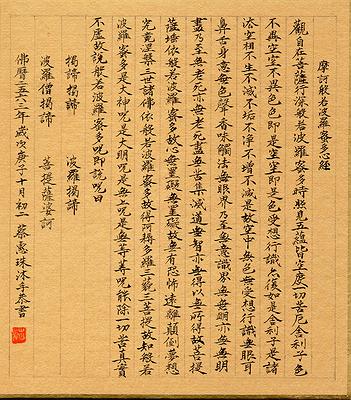 摩訶般若波羅蜜多心經
觀自在菩薩行深般若波羅蜜多時照見五蘊皆空度一切苦厄舍利子色
不異空空不異色色即是空空即是色受想行識亦復如是舍利子是諸
法空相不生不滅不垢不淨不增不減是故空中無色無受想行識無眼耳
鼻舌身意無色聲香味觸法無眼界乃至無意識界無無明亦無無明
盡乃至無老死亦無老死盡無苦集滅道無智亦無得以無所得故菩提
薩埵依般若波羅蜜多故心無罣礙無罣礙故無有恐怖遠離顛倒夢想
究竟涅槃三世諸佛依般若波羅蜜多故得阿耨多羅三藐三菩提故知般若
波羅蜜多是大神咒是大明咒是無上咒是無等等咒能除一切苦真實
不虛故說般若波羅蜜多咒即說咒曰
揭諦揭諦 波羅揭諦
波羅僧揭諦 菩提薩婆訶
佛曆二五六三年歲次庚子十月初二 蔡惠珠沐手恭書